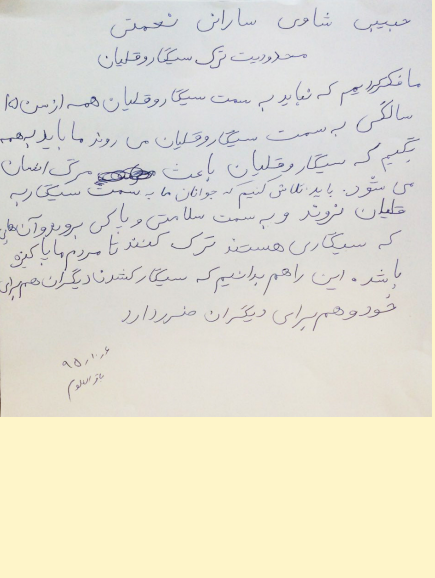 حبیبی شاوی سارانی نعمتی
محدودیت ترک سیگار و قلیان
ما فکر کردیم که نباید به سمت سیگار و قلیان همه از سن ۱۵
سالگی به سمت سیگار و قلیان می روند ما باید به همه
بگیم که سیگار و قلیان باعث مرگ انسان
می شود. باید تلاش کنیم که جوانان ما به سمت سیگار به
قلیان نروند و به سمت سلامتی و پاکی بروند و آن های
که سیگاری هستند ترک کنند تا مردم ما پاکیزه
باشد. این را هم بدانیم که سیگار کشدن دیگران هم برای
خود و هم برای دیگران ضرر دارد
۹۵,۱۰,۶